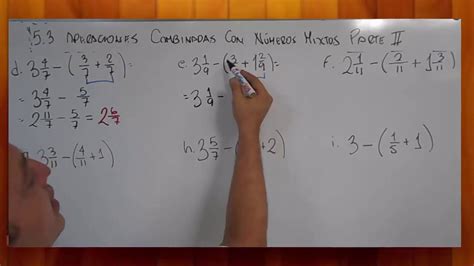 5.3 OPERACIONES COMBINADAS CON NÚMEROS MIXTOS PARTE II
d. 3 4/7 − (3/7 + 2/7) =
= 3 4/7 − 5/7
= 2 11/7 − 5/7 = 2 6/7
e. 3 1/9 − (3 + 1 2/9) =
= 3 1/9 −
f. 2 1/11 − (2/11 + 1 3/11)
3 3/11 − (4/11 + 1)
h. 3 5/7 − + 2)
i. 3 − (1/5 + 1)